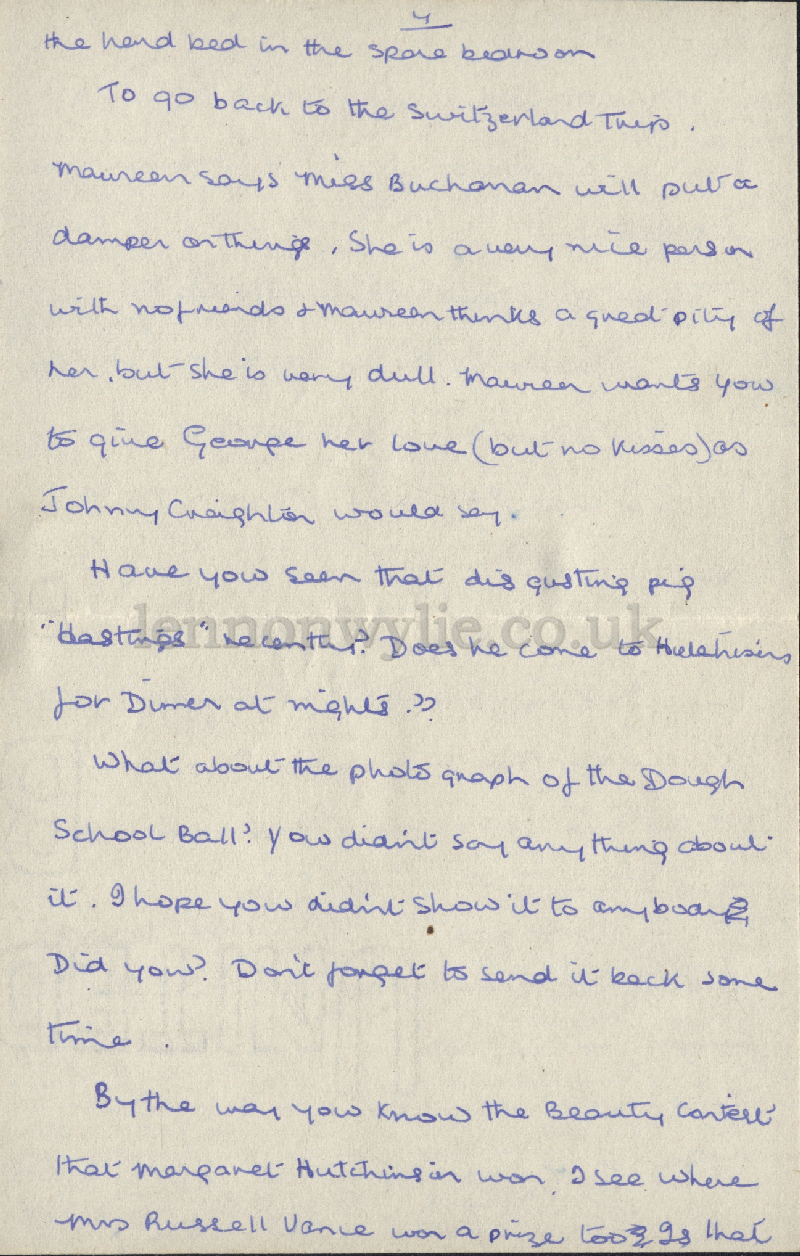 4
the hard bed in the spare bedroom
To go back to the Switzerland Trip.
Maureen says Miss Buchanan will put a
damper on things, She is a very nice person
with no friends & Maureen thinks a great pity of
her, but she is very dull. Maureen wants you
to give George her love (but no kisses) as
Johnny Creighton would say.
Have you seen that disgusting pig
"Hastings" recently? Does he come to Hutchisons
for Dinner at nights.??
What about the photograph of the Dough
School Ball? You didn't say anything about
it. I hope you didn't show it to anybody
Did you? Don't forget to send it back some
time.
By the way you know the Beauty Contest
that Margaret Hutchinson won, I see where
Mrs Russell Vance won a prize too? Is that
lennonwylie.co.uk